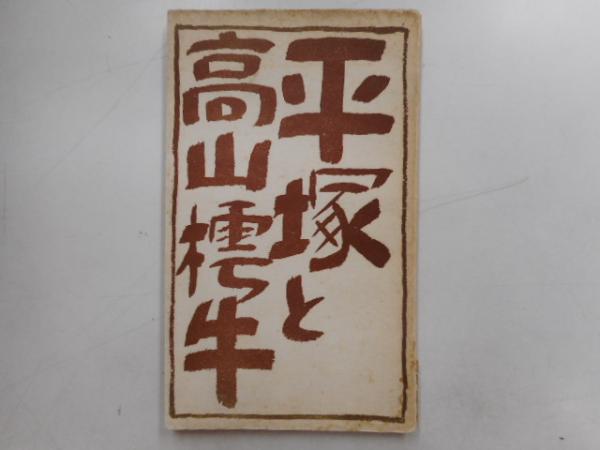 平塚と
高山樗牛